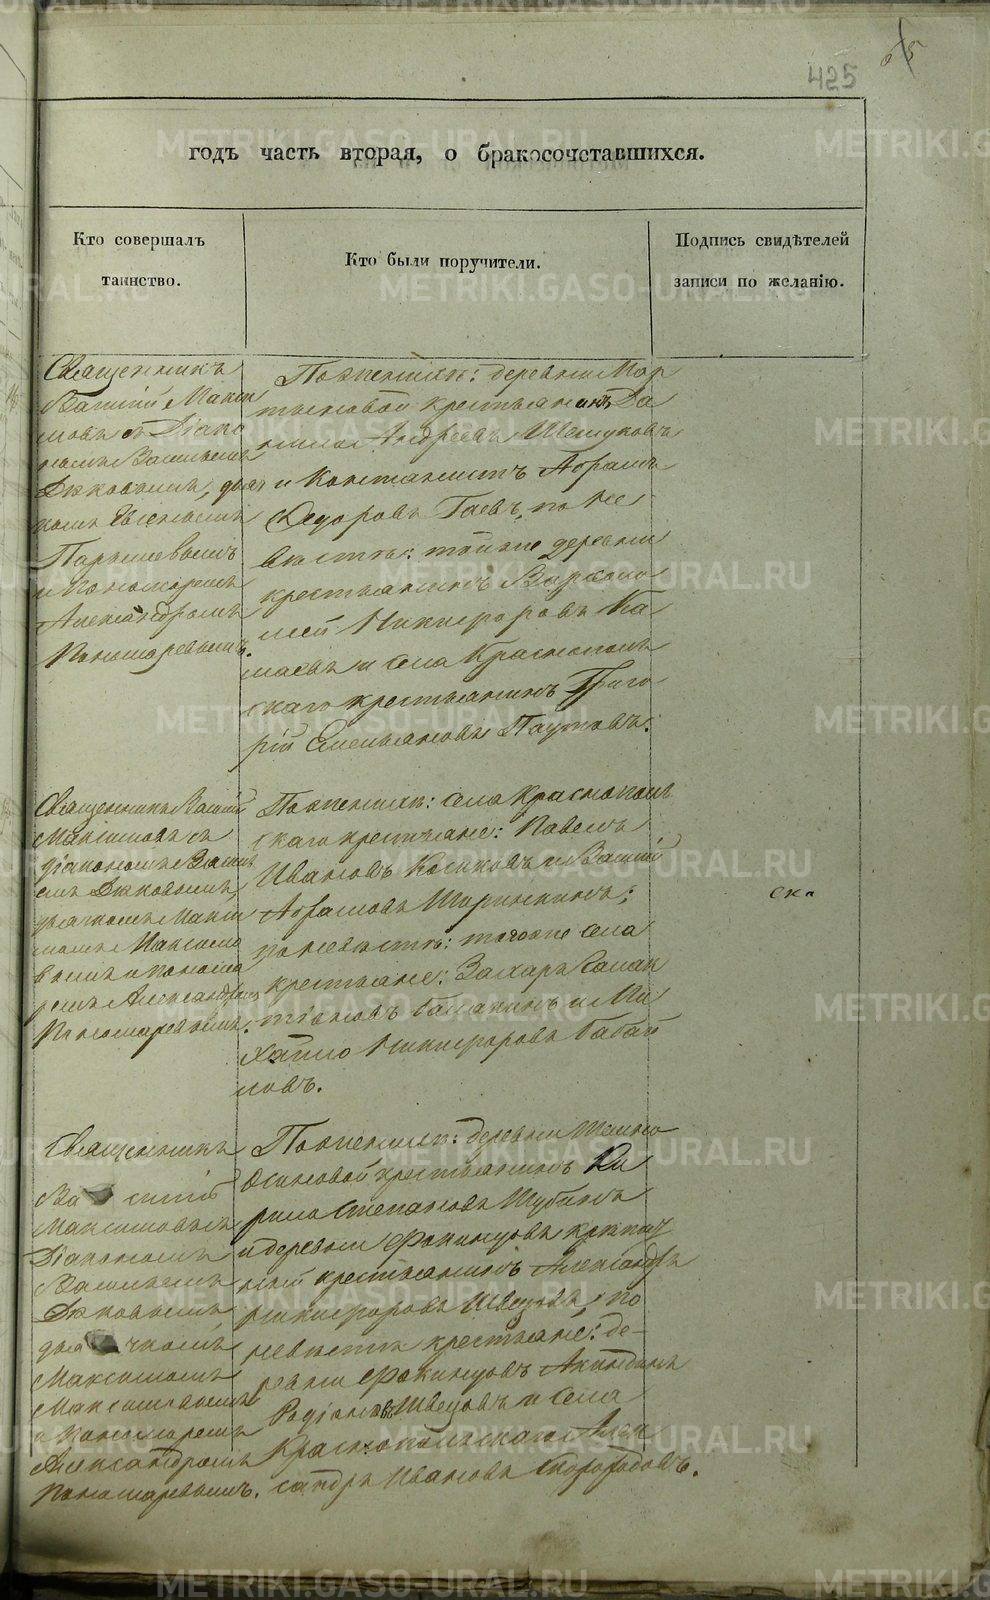 425
65
годъ часть вторая, о бракосочетавшихся.
Кто совершалъ
таинство.
Кто были поручители.
Подпись свидѣтелей
записи по желанію.
Священникъ
Василій Макси
мовъ съ Діако
номъ Васильемъ
Дьковымъ, дьяч
комъ Евгеніемъ
Парышевымъ
и Пономаремъ
Александромъ
Пономаревымъ.
По женихѣ: деревни Мар
тыновой крестьянинъ Да
нило Андреевъ Шешуковъ
и Кантонистъ Абрамъ
Ѳедоровъ Гаевъ, по не
вѣстѣ: тойже деревни
крестьянинъ Варѳоло
мей Никифоровъ Ка
маевъ и села Краснополь
скаго крестьянинъ Григо
рій Емельяновъ Паутовъ.
Священникъ Василій
Максимовъ съ
діакономъ Василь
емъ Дьковымъ,
дьячкомъ Макси
момъ Максимо
вымъ и понома
ремъ Александромъ
Пономаревымъ.
По женихѣ: села Краснополь
скаго крестьяне: Павелъ
Ивановъ Косиковъ и Василій
Абрамовъ Ширинкинъ;
по невѣстѣ: тогоже села
крестьяне: Захаръ Галак
тіоновъ Балакинъ и Ми
хайло Никифоровъ Бабай
ловъ.
Священникъ
Василій
Максимовъ съ
Діакономъ
Васильемъ
Дьковымъ
дьячкомъ
Максимомъ
Максимовымъ
и Пономаремъ
Александромъ
Пономаревымъ.
По женихѣ: деревни
Осиновой крестьянинъ Ки
рило Степановъ Шубинъ
и деревни Фокинцовъ
крестьянинъ Александръ
Никифоровъ Швецовъ, по
невѣстѣ крестьяне: де-
ревни Фокинцовъ Акиндинъ
Родіоновъ Швецовъ и села
Краснопольскаго Алек
сандръ Ивановъ Скороходовъ.
METRIKI.GASO-URAL.RU